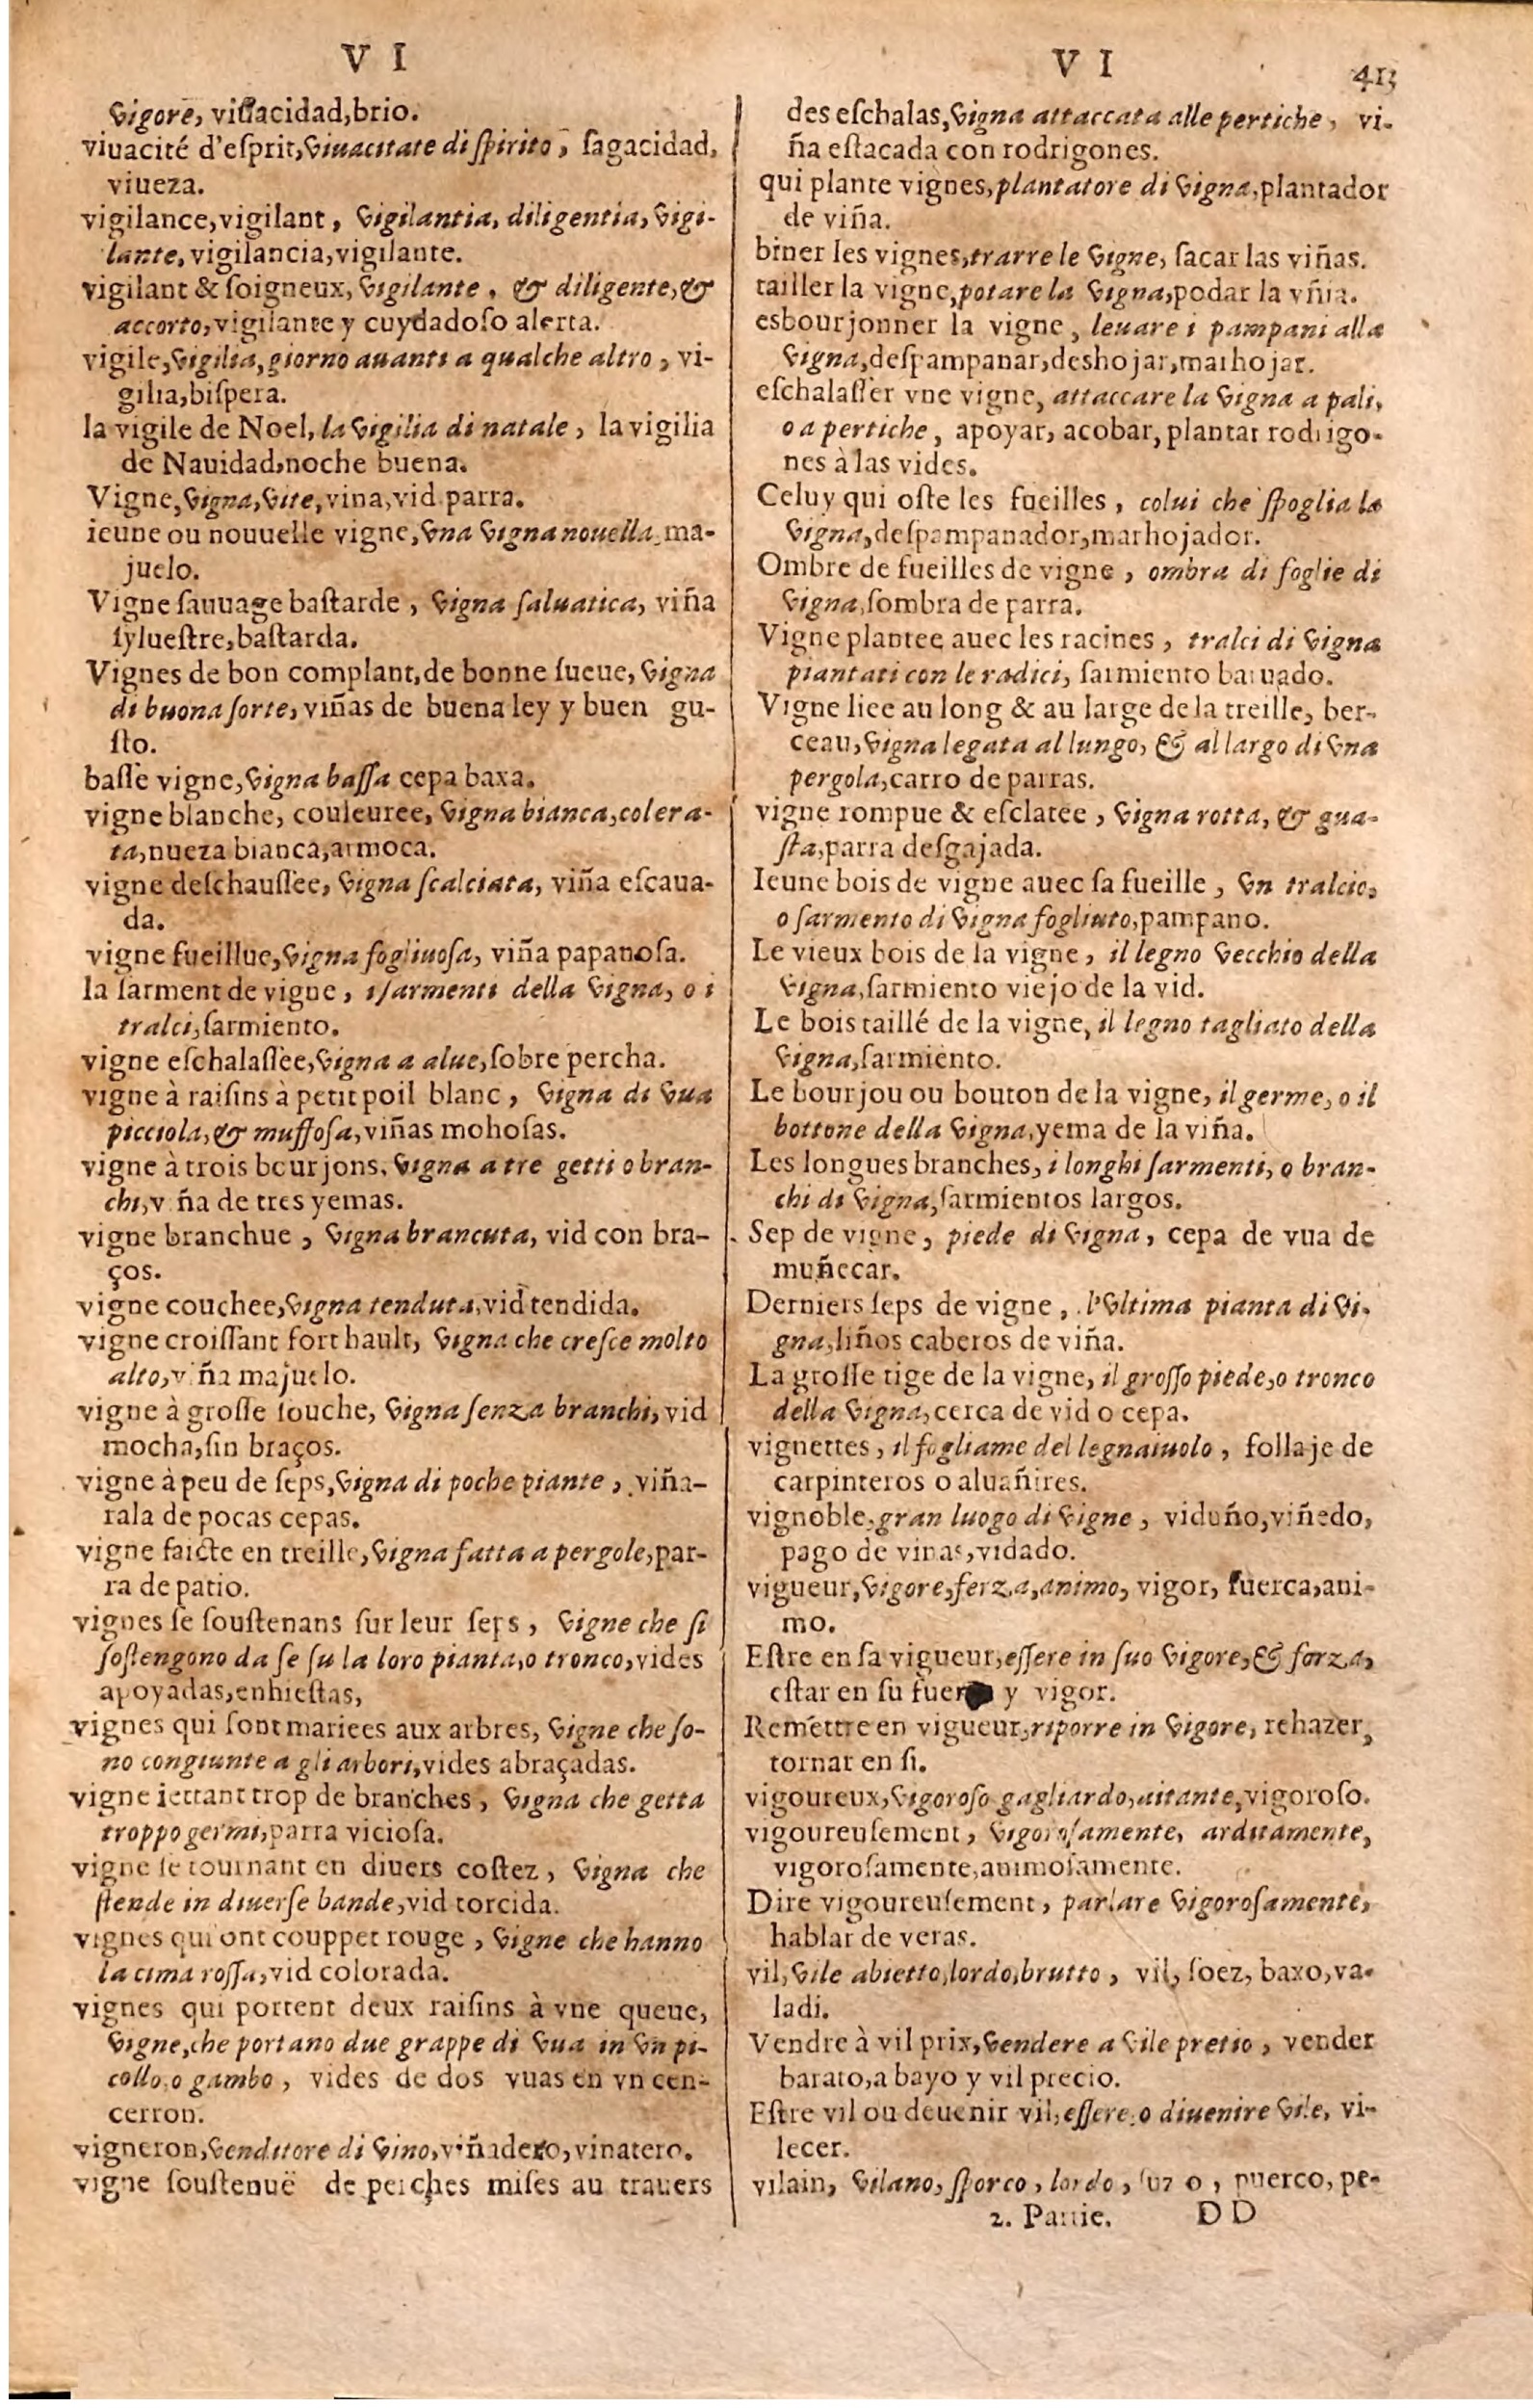 V I
vigore, viuacidad, brio.
viuacité d'esprit, viuacitate di spirito, sagacidad,
viueza.
vigilance, vigilant, vigilantia, diligentia, vigi-
lante, vigilancia, vigilante.
vigilant & soigneux, vigilante, & diligente, &
accorto, vigilante y cuydadoso alerta.
vigile, vigilia, giorno auanti a qualche altro, vi-
gilia, bispera.
la vigile de Noel, la vigilia di natale, la vigilia
de Nauidad, noche buena.
Vigne, vigna, vite, vina, vid parra.
ieune ou nouuelle vigne, vna vigna nouella, ma-
juelo.
Vigne sauuage bastarde, vigna saluatica, viña
syluestre, bastarda.
Vignes de bon complant, de bonne sueue, vigna
di buona sorte, viñas de buena ley y buen gu-
sto.
basse vigne, vigna bassa cepa baxa.
vigne blanche, couleuree, vigna bianca, colera-
ta, nueza bianca, armoca.
vigne deschaussee, vigna scalciata, viña escaua-
da.
vigne fueillue, vigna fogliuosa, viña papanosa.
la sarment de vigne, i sarmenti della vigna, o i
tralci, sarmiento.
vigne eschalassee, vigna a alue, sobre percha.
vigne à raisins à petit poil blanc, vigna di vua
picciola, & muffosa, viñas mohosas.
vigne à trois bourjons, vigna a tre getti o bran-
chi, v ña de tres yemas.
vigne branchue, vigna brancuta, vid con bra-
ços.
vigne couchee, vigna tenduta, vid tendida.
vigne croissant fort hault, vigna che cresce molto
alto, v ña majuelo.
vigne à grosse souche, vigna senza branchi, vid
mocha, sin braços.
vigne à peu de seps, vigna di poche piante, viña-
rala de pocas cepas.
vigne faicte en treille, vigna fatta a pergole, par-
ra de patio.
vignes se soustenans sur leur seps, vigne che si
sostengono da se su la loro pianta, o tronco, vides
apoyadas, enhiestas,
vignes qui sont mariees aux arbres, vigne che so-
no congiunte a gli arbori, vides abraçadas.
vigne iettant trop de branches, vigna che getta
troppo germi, parra viciosa.
vigne se tournant en diuers costez, vigna che
stende in diuerse bande, vid torcida.
vignes qui ont couppet rouge, vigne che hanno
la cima rossa, vid colorada.
vignes qui portent deux raisins à vne queue,
vigne, che portano due grappe di vua in vn pi-
collo, o gambo, vides de dos vuas en vn cen-
cerron.
vigneron, venditore di vino, viñadero, vinatero.
vigne soustenuë de perches mises au trauers
V I
413
des eschalas, vigna attaccata alle pertiche, vi-
ña estacada con rodrigones.
qui plante vignes, plantatore di vigna, plantador
de viña.
biner les vignes, trarre le vigne, sacar las viñas.
tailler la vigne, potare la vigna, podar la vñia.
esbourjonner la vigne, leuare i pampani alla
vigna, despampanar, deshojar, marhojar.
eschalasser vne vigne, attaccare la vigna a pali,
o a pertiche, apoyar, acobar, plantar rodrigo-
nes à las vides.
Celuy qui oste les fueilles, colui che spoglia la
vigna, despampanador, marhojador.
Ombre de fueilles de vigne, ombra di foglie di
vigna, sombra de parra.
Vigne plantee auec les racines, tralci di vigna
piantati con le radici, sarmiento baruado.
Vigne liee au long & au large de la treille, ber-
ceau, vigna legata al lungo, & al largo di vna
pergola, carro de parras.
vigne rompue & esclatee, vigna rotta, & gua-
sta, parra desgajada.
Ieune bois de vigne auec sa fueille, vn tralcio,
o sarmento di vigna fogliuto, pampano.
Le vieux bois de la vigne, il legno vecchio della
vigna, sarmiento viejo de la vid.
Le bois taillé de la vigne, il legno tagliato della
vigna, sarmiento.
Le bourjou ou bouton de la vigne, il germe, o il
bottone della vigna, yema de la viña.
Les longues branches, i longhi sarmenti, o bran-
chi di vigna, sarmientos largos.
Sep de vigne, piede di vigna, cepa de vua de
muñecar.
Derniers seps de vigne, l'vltima pianta di vi-
gna, liños caberos de viña.
La grosse tige de la vigne, il grosso piede, o tronco
della vigna, cerca de vid o cepa.
vignettes, il fogliame del legnaiuolo, follaje de
carpinteros o aluañires.
vignoble, gran luogo di vigne, viduño, viñedo,
pago de vinas, vidado.
vigueur, vigore, ferza, animo, vigor, fuerca, ani-
mo.
Estre en sa vigueur, essere in suo vigore, & forza,
estar en su y vigor.
Remettre en vigueur, riporre in vigore, rehazer,
tornar en si.
vigoureux, vigoroso gagliardo, aitante, vigoroso.
vigoureusement, vigorosamente, arditamente,
vigorosamente, animosamente.
Dire vigoureusement, parlare vigorosamente,
hablar de veras.
vil, vile abietto, lordo, brutto, vil, soez, baxo, va-
ladi.
Vendre à vil prix, vendere a vile pretio, vender
barato, a bayo y vil precio.
Estre vil ou deuenir vil, essere, o diuenire vile, vi-
lecer.
vilain, vilano, sporco, lordo, suz o, puerco, pe-
2. Partie. D D